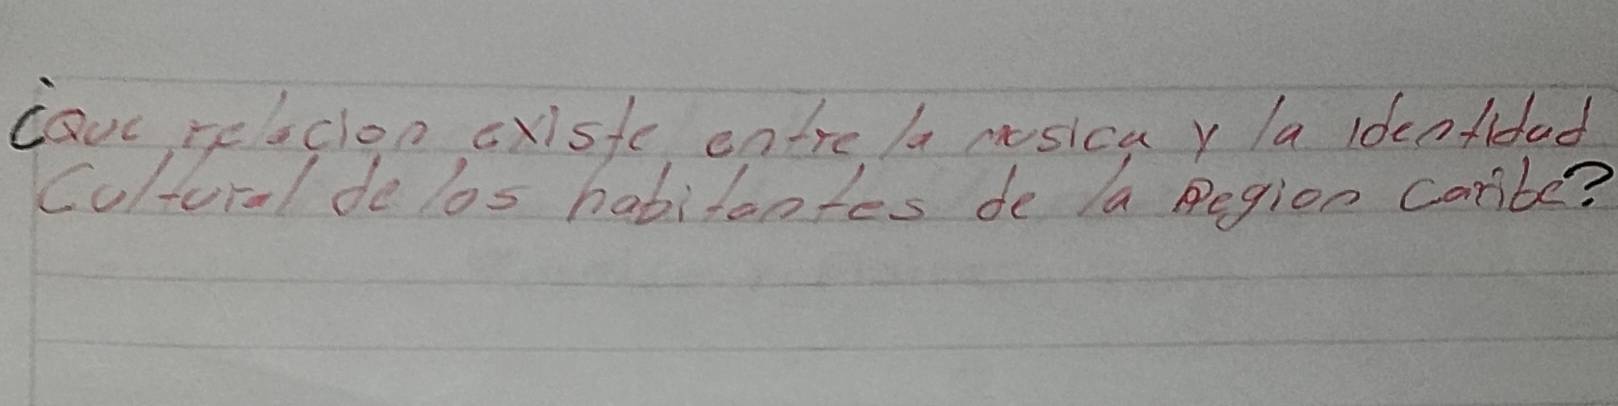 ¿Que relacion existe entre la musica y la identidad
Cultural de los habitantes de la Region caribe?